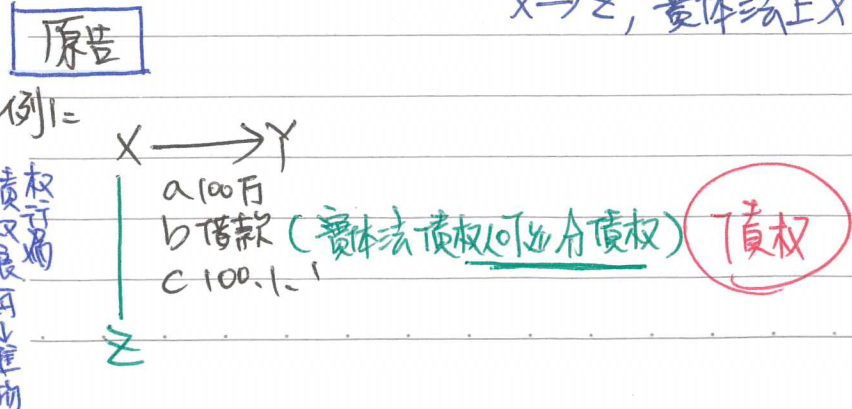 X→Z, 實体法上X
原告
例1=
X → Y
a 100万
b 借款 (實体法債权(可分債权)) 債权
c 100.1.1
Z